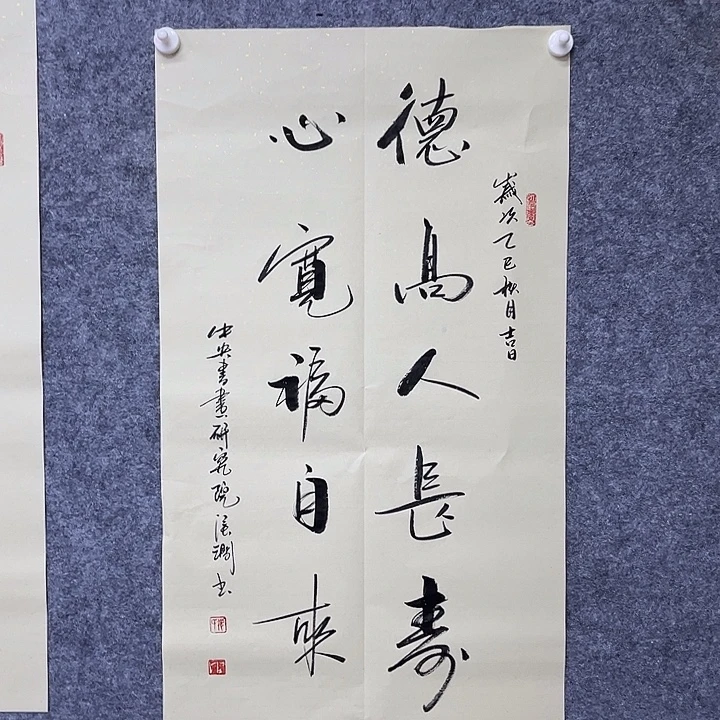 歲次乙巳秋月吉日
德高人長壽
心寬福自來
中央書畫研究院
書